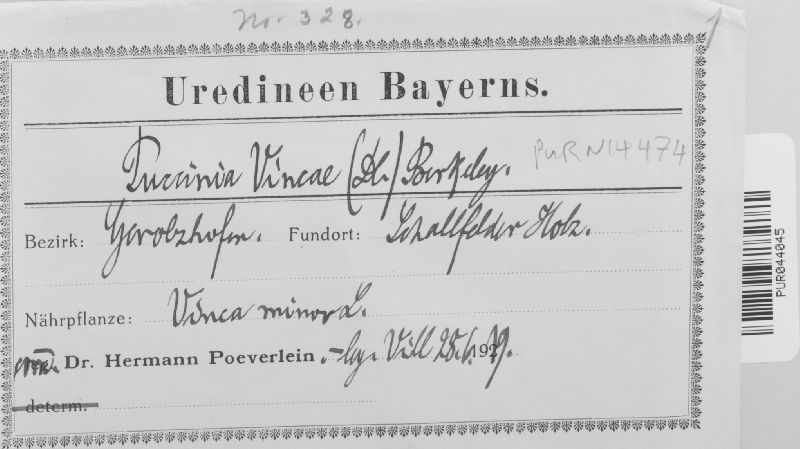 No. 328.
Uredineen Bayerns.
Puccinia Vincae (DC.) Berkeley.
PUR N14474
Bezirk: Gerolzhofen. Fundort: Schallfelder Holz.
Nährpflanze: Vinca minor L.
Dr. Hermann Poeverlein. – leg. Vill 28. 6. 1929.
determ.
PUR044045